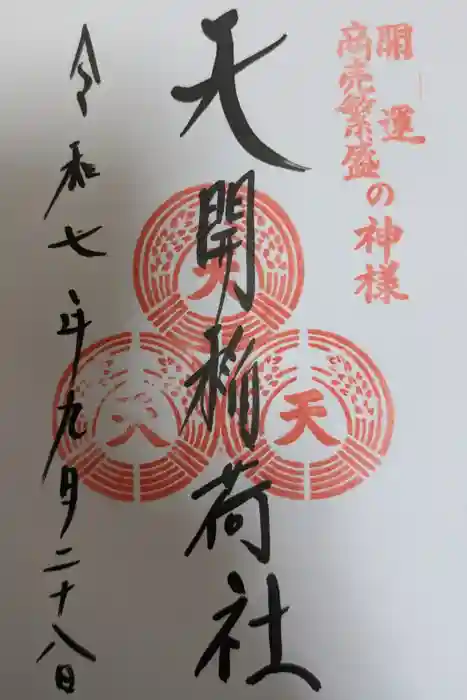 開運
商売繁盛
の神様
天開稲荷社
天
天
天
令和七年九月二十八日